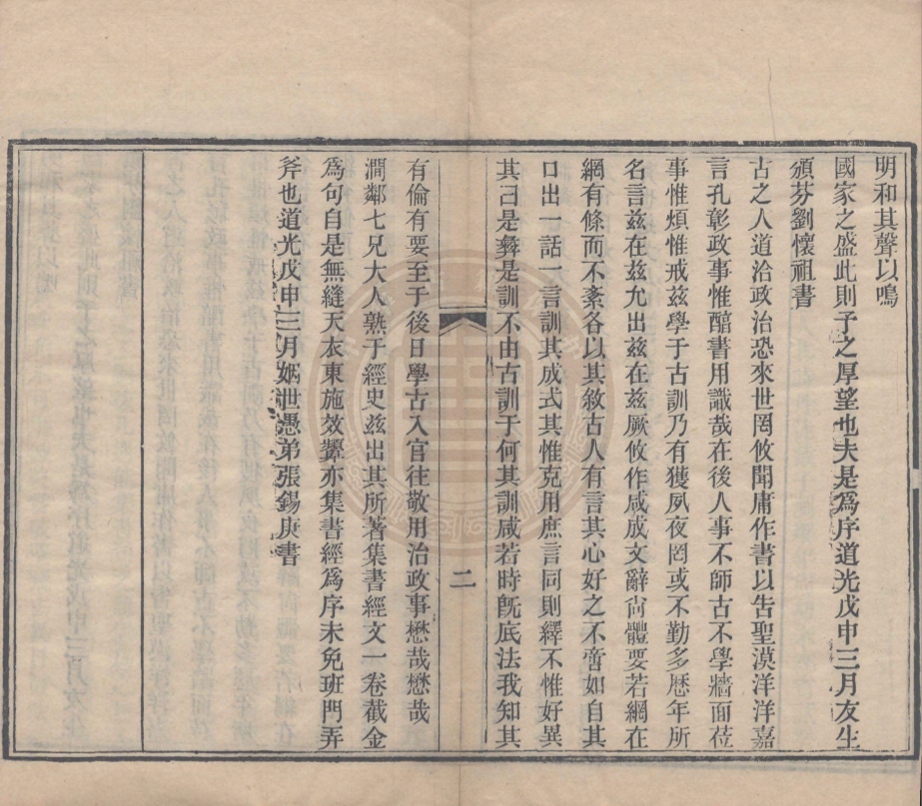 明和其聲以鳴
國家之盛此則予之厚望也夫是爲序道光戊申三月友生
頖芬劉懷祖書
古之人道洽政治恐來世罔攸聞庸作書以告聖謨洋洋嘉
言孔彰政事惟醇書用識哉在後人事不師古不學牆面莅
事惟煩惟戒茲學于古訓乃有獲夙夜罔或不勤多歴年所
名言茲在茲允出茲在茲厥攸作咸成文辭尚體要若網在
綱有條而不紊各以其敘古人有言其心好之不啻如自其
口出一話一言訓其成式其惟克用庶言同則繹不惟好異
其曰是彝是訓不由古訓于何其訓咸若時旣底法我知其
二
有倫有要至于後日學古入官往敬用治政事懋哉懋哉
澗鄰七兄大人熟于經史茲出其所著集書經文一卷截金
爲句自是無縫天衣東施效顰亦集書經爲序未免班門弄
斧也道光戊申三月姻世愚弟張錫庚書